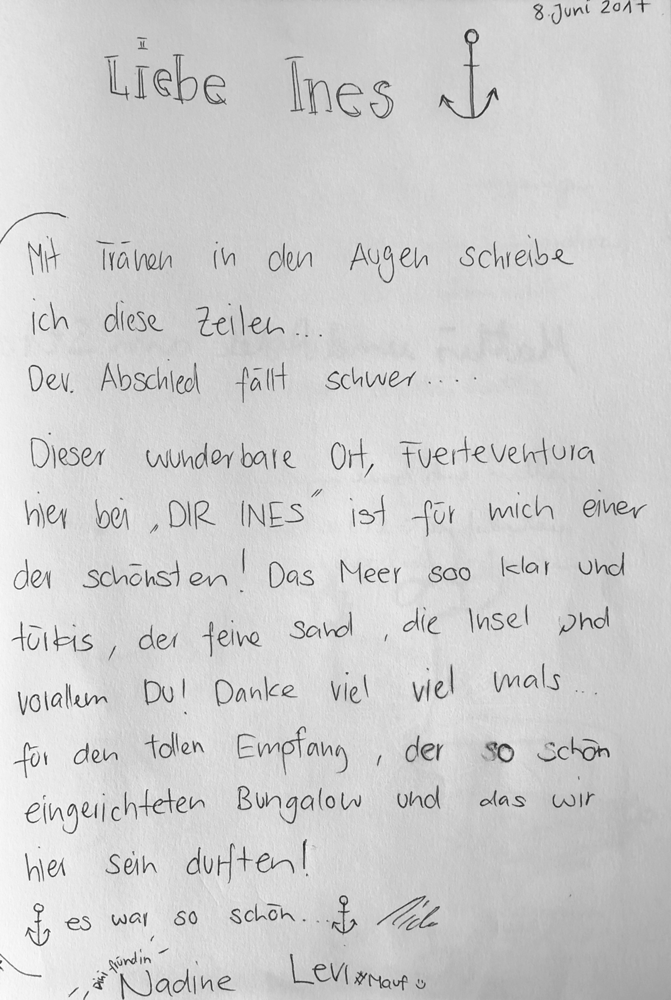 8. Juni 2017
Liebe Ines
Mit Tränen in den Augen schreibe
ich diese Zeilen...
Der Abschied fällt schwer....
Dieser wunderbare Ort, Fuerteventura
hier bei „DIR INES" ist für mich einer
der schönsten! Das Meer soo klar und
türkis, der feine Sand, die Insel und
vorallem Du! Danke viel viel mals...
für den tollen Empfang, der so schön
eingerichteten Bungalow und das wir
hier sein durften!
es war so schön...
fründin
Nadine Levi